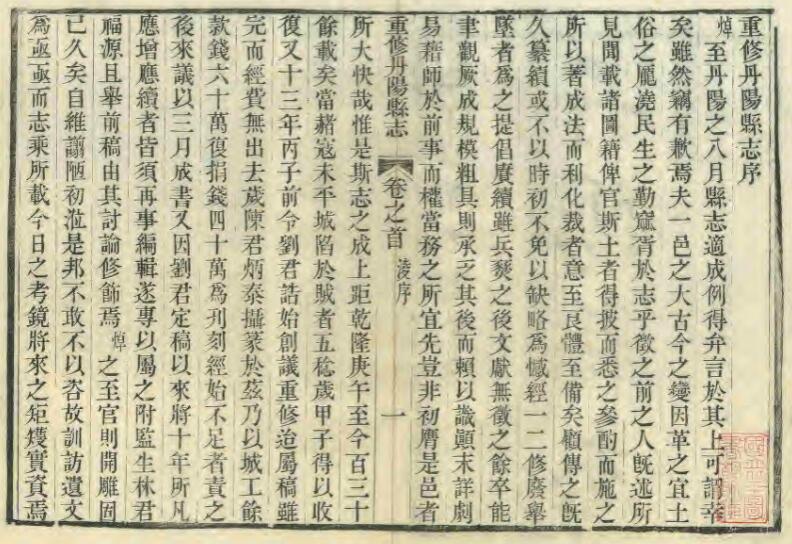 重修丹陽縣志序
焯至丹陽之八月縣志適成例得弁言於其上可謂幸
矣雖然竊有歉焉夫一邑之大古今之變因革之宜土
俗之厖澆民生之勤窳胥於志乎徵之前之人旣述所
見聞載諸圖籍俾官斯土者得披而悉之參酌而施之
所以著成法而利化裁者意至良體至備矣顧傳之旣
久纂續或不以時初不免以缺略爲憾經一二修廢舉
墜者爲之提倡賡續雖兵燹之後文獻無徵之餘卒能
聿觀厥成規模粗具則承乏其後而賴以識顚末詳劇
易藉師於前事而權當務之所宜先豈非初膺是邑者
重修丹陽縣志
卷之首
凌序
一
所大快哉惟是斯志之成上距乾隆庚午至今百三十
餘載矣當赭寇未平城陷於賊者五稔歲甲子得以收
復又十三年丙子前令劉君誥始創議重修迨屬稿雖
完而經費無出去歲陳君炳泰攝篆於茲乃以城工餘
款錢六十萬復捐錢四十萬爲刊刻經始不足者責之
後來議以三月成書又因劉君定稿以來將十年所凡
應增應續者皆須再事編輯遂專以屬之附監生林君
福源且舉前稿由其討論修飾焉焯之至官則開雕固
已久矣自維譾陋初涖是邦不敢不以咨故訓訪遺文
爲亟亟而志乘所載今日之考鏡將來之矩矱實資焉